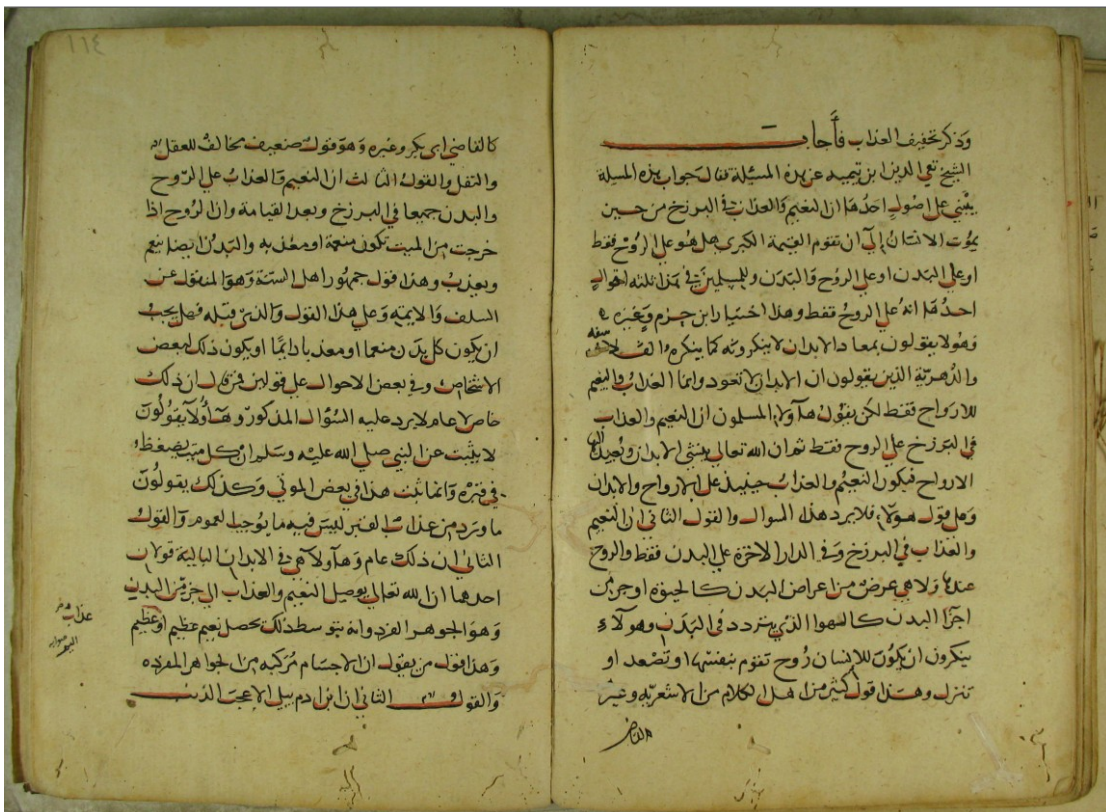 وذكر تخفيف العذاب فأجاب
الشيخ تقي الدين ابن تيميه عن هذه المسئلة فقال جواب هذه المسئلة
ينبني على اصول احدها ان النعيم والعذاب في البرزخ من حين
يموت الانسان إلى آن تقوم القيمة الكبرى هل هو على الروح فقط
او على البدن او على الروح والبدن وللمسلمين في هذا ثلثه اقوال
احدها انه على الروح فقط وهذا اختيار ابن حزم وغيره
وهولا يقولون بمعاد الابدان لا ينكرونه كما ينكره الفلاسفه
والدهرية الذين يقولون ان الابدان لا تعود وانما العذاب والنعيم
للارواح فقط لكن يقول هآولا المسلمون ان النعيم والعذاب
في البرزخ على الروح فقط ثم ان الله تعالى ينشئ الابدان وتعيد اليها
الارواح فيكون النعيم والعذاب حينيذ على الارواح والابدان
وعلى قول هولاء فلا يرد هذا السوال والقول الثاني ان النعيم
والعذاب في البرزخ وفي الدار الاخرة على البدن فقط والروح
عندها ولا هي عرض من اعراض البدن كالحيوة او جزء من
اجزا البدن كالهوا الذي يتردد في البدن وهولاء
ينكرون ان يكون للانسان روح تقوم بنفسها او تصعد او
تنزل وهذا قول كثير من اهل الكلام من الاشعريه وغير
كالقاض
١١٤
كالقاضي ابى بكر وغيره وهو قول ضعيف مخالف للعقل
والنقل والقول الثالث ان النعيم والعذاب على الروح
والبدن جميعا في البرزخ وبعد القيامة وان الروح اذا
خرجت من الميت تكون منعمة او معذبه والبدن ايضا ينعم
ويعذب وهذا قول جمهور اهل السنة وهو المنقول عن
السلف والايمة وعلى هذا القول والذي قبله فهل يجب
ان يكون كل بدن منعما او معذبا دايما او يكون ذلك لبعض
الاشخاص وفي بعض الاحوال على قولين فمن قال ان ذلك
خاص لا عام لا يرد عليه السؤال المذكور وهآولا يقولون
لا يثبت عن النبي صلى الله عليه وسلم ان كل ميت يضغط
في قبره وانما ثبت هذا في بعض الموتى وكذلك يقولون
ما ورد من عذاب القبر ليس فيه ما يوجب العموم والقول
الثاني ان ذلك عام وهآولا في الابدان البالية قولان
احدهما ان الله تعالى يوصل النعيم والعذاب الى جزء من البدن
وهو الجوهر الفرد وانه بتوسط ذلك يحصل نعيم عظيم او عظيم
عذاب
وهذا قول من يقول ان الاجسام مركبه من الجواهر المفرده
والقول الثاني ان ابن ادم يبلى الا عجب الذنب